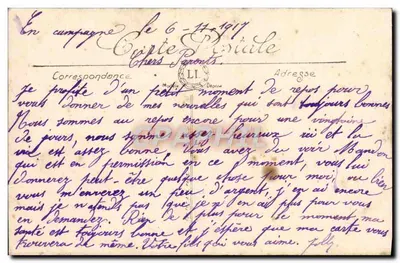 En campagne le 6-11-1917
Carte Postale
Chers Parents.
Correspondance
Adresse
Je profite d'un petit moment de repos pour
vous donner de mes nouvelles qui sont toujours bonnes
Nous sommes au repos encore pour une vingtaine
de jours, nous sommes assez heureux ici et la
vie est assez bonne. Vous avez du voir
qui est en permission en ce moment, vous lui
donnerez peut-être quelque chose pour moi, ou bien
vous m'enverrez un peu d'argent, j'en ai encore
mais je n'attends pas que j'en ai plus pour vous
en demander. Rien de plus pour le moment, ma
santé est toujours bonne et j'espère que ma carte vous
trouvera de même. Votre fils qui vous aime.